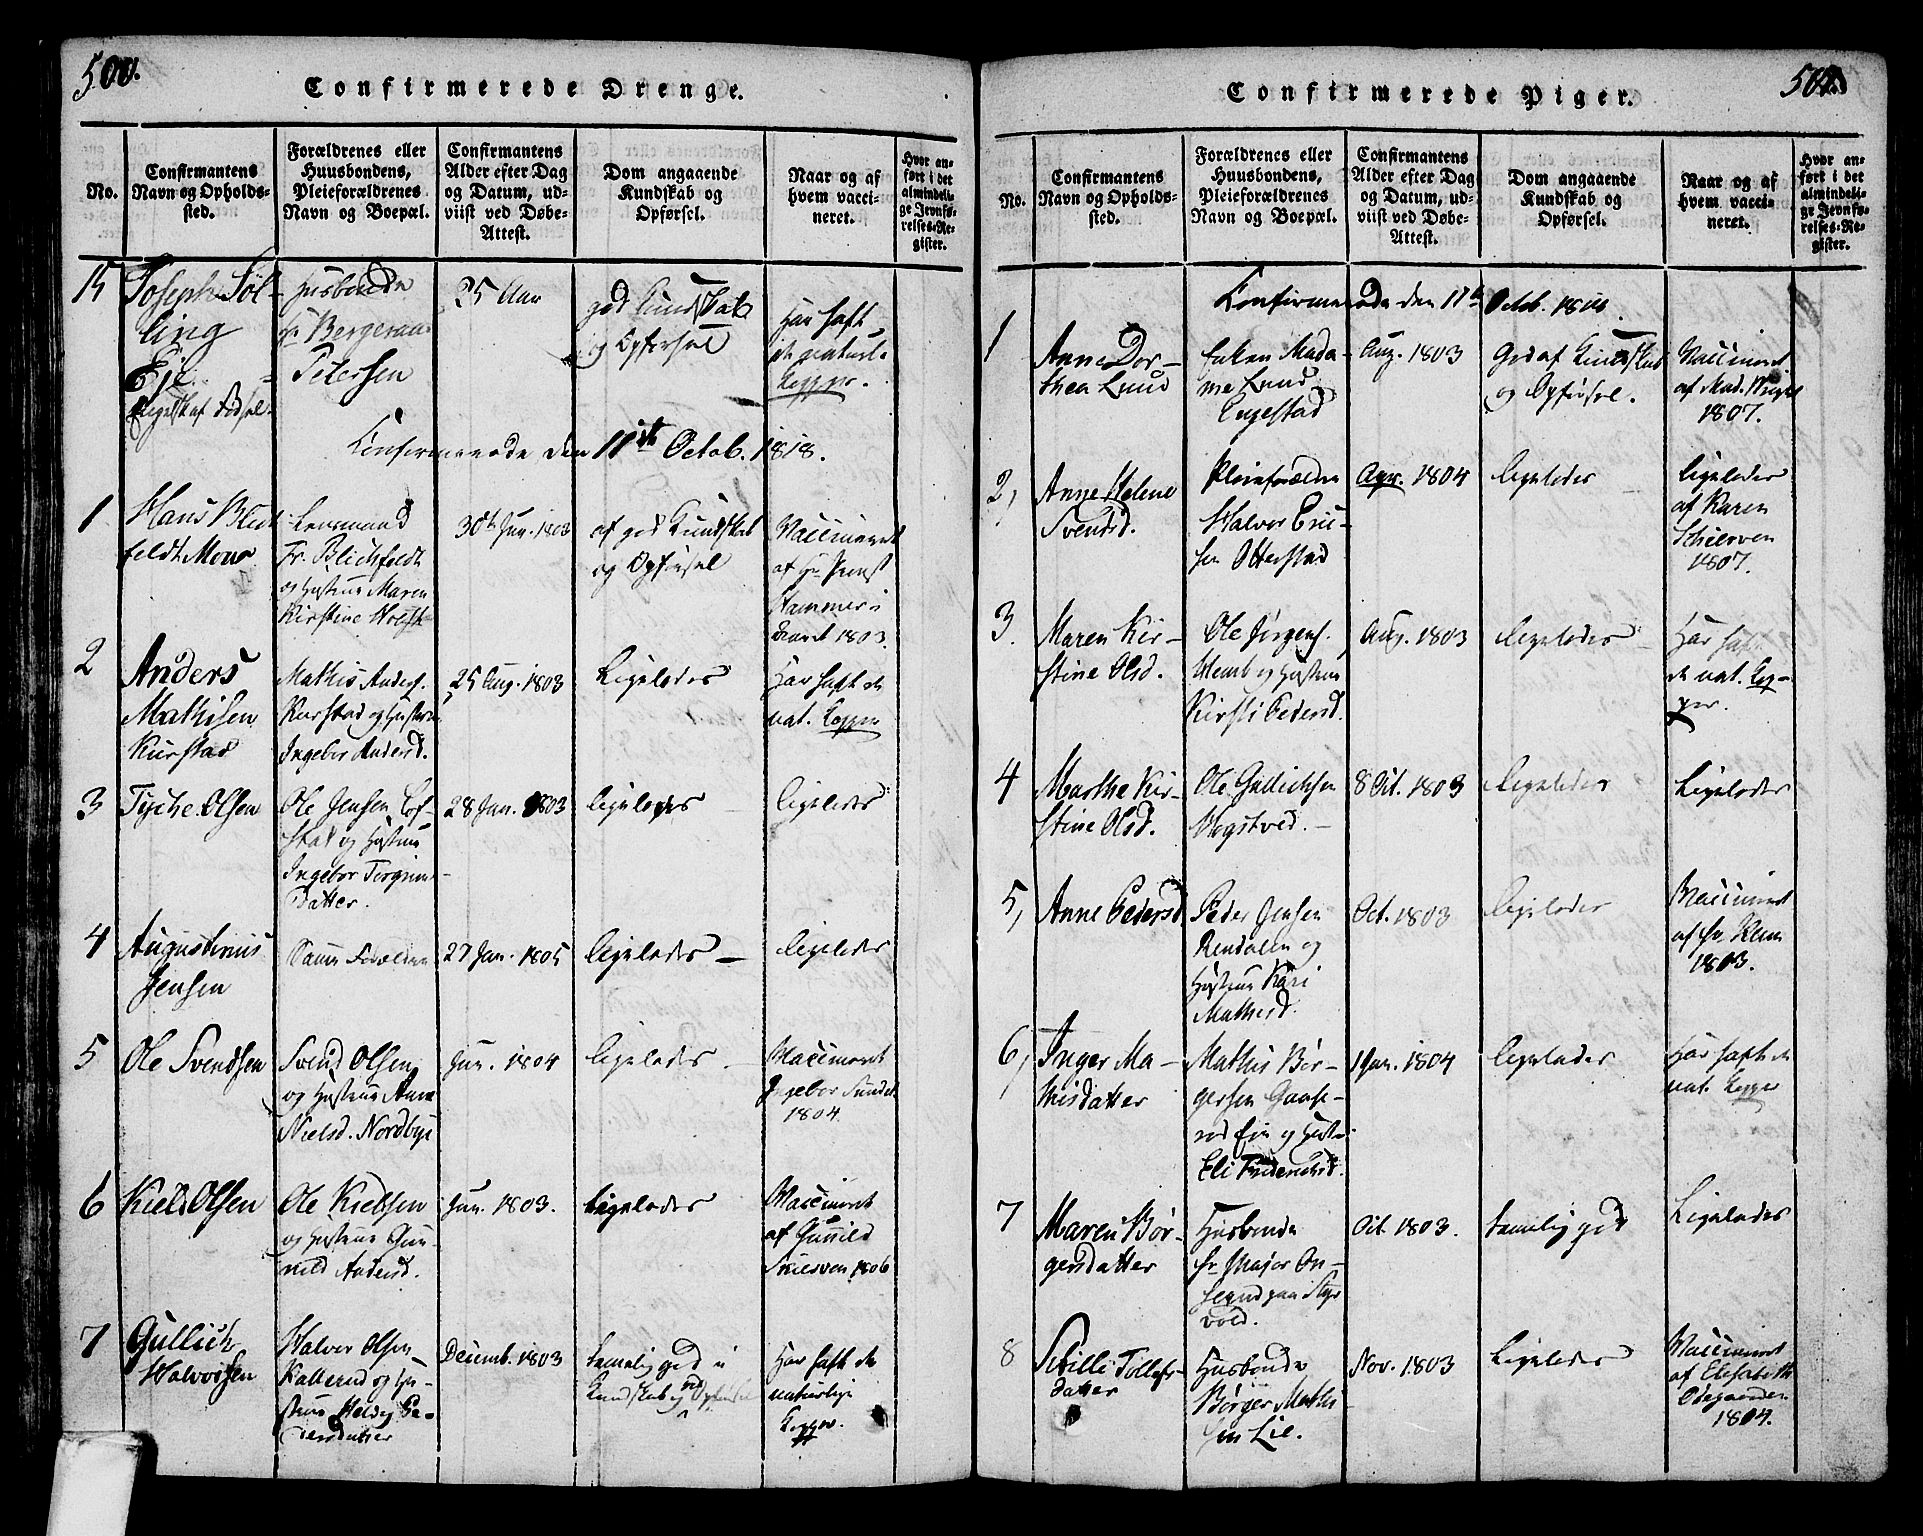 500.
Confirmerede Drenge.
No.
Confirmantens
Navn og Opholds-
sted.
Forældrenes eller
Huusbondens,
Pleieforældrenes
Navn og Boepæl.
Confirmantens
Alder efter Dag
og Datum, ud-
viist ved Døbe-
Attest.
Dom angaaende
Kundskab og
Opførsel.
Naar og af
hvem vacci-
neret.
Hvor an-
ført i det
almindeli-
ge Jevnfø-
relses-Re-
gister.
15
Joseph Söl-
ling
Eje
Husbonde
Hr Bergeraad
Petersen
25 Aar
god Kundskab
og Opførsel
Har haft
de naturl.
Kopper.
Confirmerede den 11te Octob. 1818.
1
Hans Blich
feldt Moss
Lensmand
Fr. Blichfeldt
og Hustrue Maren
Kirstine
30te Jun. 1803
af god Kundskab
og Opførsel
Vaccineret
af Hr Provst
Hammer i
1803.
2
Anders
Mathisen
Kurstad
Mathis Anders.
Kurstad og Hustrue
Ingebor Andersd.
25 Aug. 1803
Ligeledes
Har haft de
nat. Kopper
3
Tyche Olsen
Ole Jensen
stad og Hustrue
Ingebor Torgrims
Datter.
28 Jan. 1803
ligeledes
ligeledes
4
Augustinus
Jensen
Samme Forældre
27 Jan. 1805
ligeledes
ligeledes
5
Ole Svendsen
Svend Olsen
og Hustrue Anne
Nielsd. Nordbye
Jun. 1804
ligeledes
Vaccineret
Ingebor Sundet
1804.
6
Kield Olsen
Ole Kieldsen
og Hustrue Gun-
nild Andersd.
Jun. 1803.
ligeledes
Vaccineret
af Gunild
Skierven 1806
7
Gullich
Halvorsen
Halvor Olsen
Kallerud og Hu-
strue Helvig Pe-
dersdatter
Decemb. 1803
temelig god i
Kundskab og Opførsel
Har haft de
naturlige
Kopper.
501.
Confirmerede Piger.
No.
Confirmantens
Navn og Opholds-
sted.
Forældrenes eller
Huusbondens,
Pleieforældrenes
Navn og Boepæl.
Confirmantens
Alder efter Dag
og Datum, ud-
viist ved Døbe-
Attest.
Dom angaaende
Kundskab og
Opførsel.
Naar og af
hvem vacci-
neret.
Hvor an-
ført i det
almindeli-
ge Jevnfø-
relses-Re-
gister.
Confirmerede den 11te Octob. 1818.
1
Anne Dor-
thea Lund
Enken Mada-
me Lund
Engestad
Aug. 1803
God af Kundskab
og Opførsel.
Vaccineret
af Mad.
1807.
2,
Anne Helene
Svendsd.
Pleieforældre
Halvor Eric-
sen Otterstad
Apr. 1804
ligeledes
ligeledes
af Karen
Schierven
1807.
3.
Maren Kir-
stine Olsd.
Ole Jørgens.
Wemb og Hustrue
Kirsti Pedersd.
Aug. 1803
ligeledes
Har haft
de nat. Kop-
per.
4
Marthe Kir-
stine Olsd.
Ole Gullichsen
Hogstved.
8 Oct. 1803
ligeledes
Ligeledes
5,
Anne Pedersd.
Peder Jensen
Rendalen og
Hustrue Kari
Mathisd.
Oct. 1803
ligeledes
Vaccineret
af Hr. Klem
1803.
6,
Inger Ma-
thisdatter
Mathis Bør-
gersen Gaase-
rød Eie og Hustr.
Eli Friderichsd.
1 Jan. 1804
ligeledes
Har haft de
nat. Kopper
7
Maren Bør-
gersdatter
Husbonde
Hr Major On-
sagud
vold.
Oct. 1803.
temelig god
Ligeledes
8
Sibille Tollefs-
datter
Husbonde
Børger Mathi-
sen Lie.
Nov. 1803
Ligeledes
Vaccineret
af Elisabeth
Ødegaarden
1804.